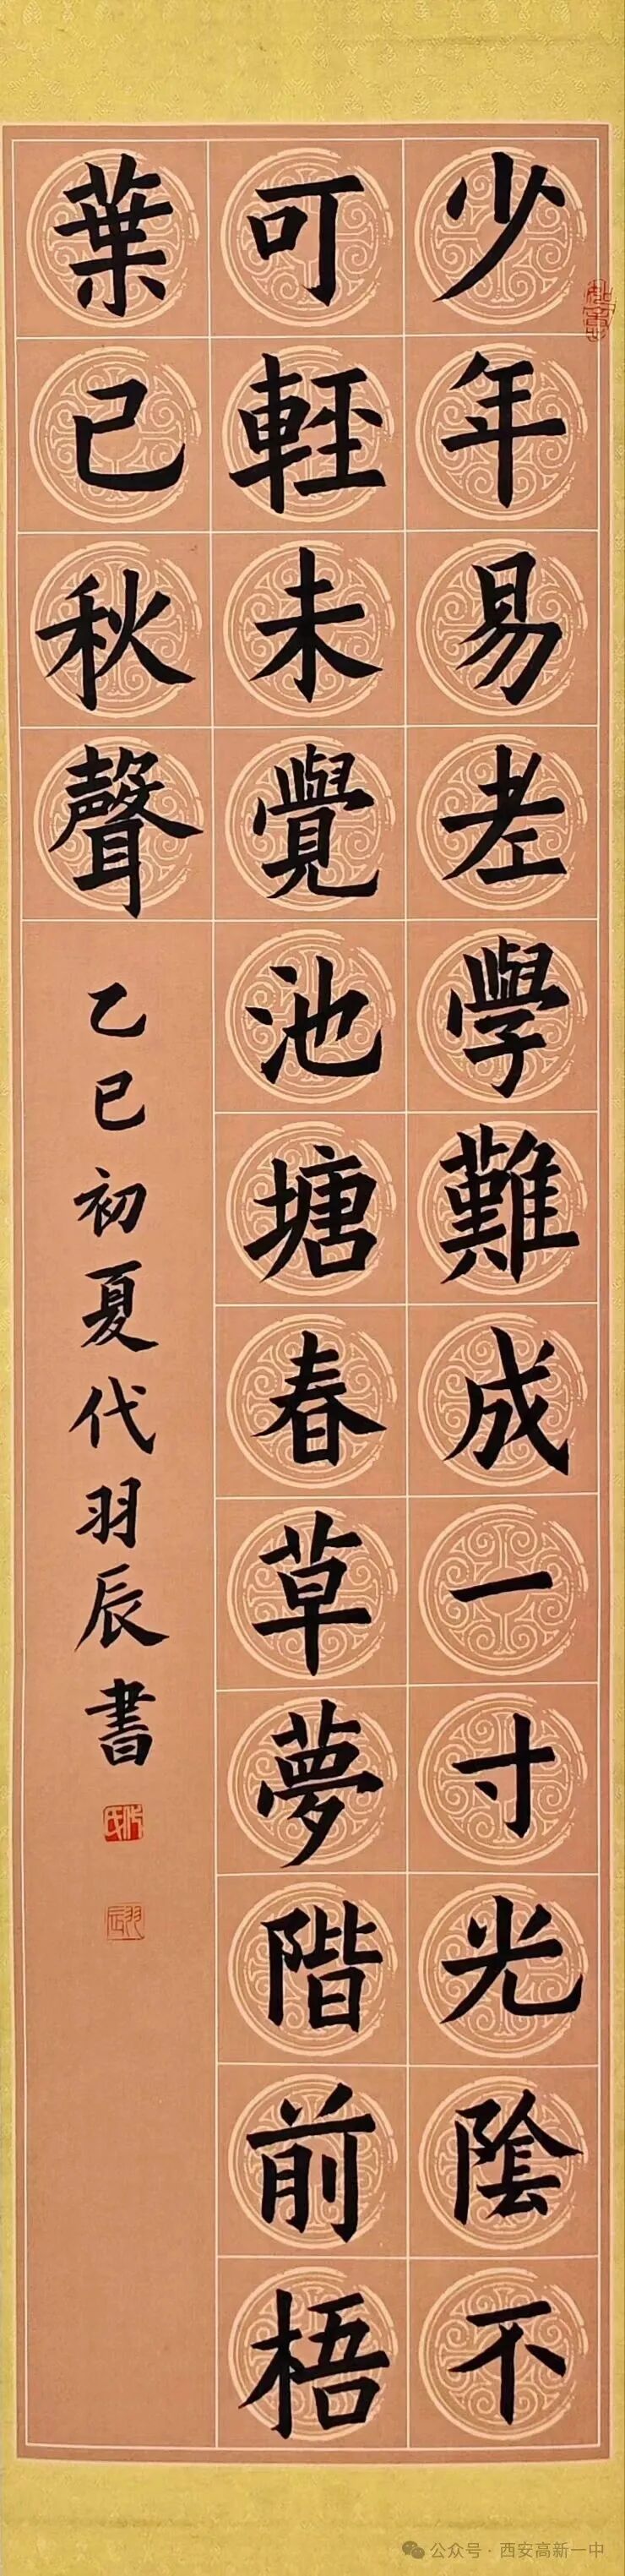 少年易老學難成一寸光陰不
可輕未覺池塘春草夢階前梧
葉已秋聲
乙巳初夏代羽辰書
代氏
羽辰
公众号·西安高新一中